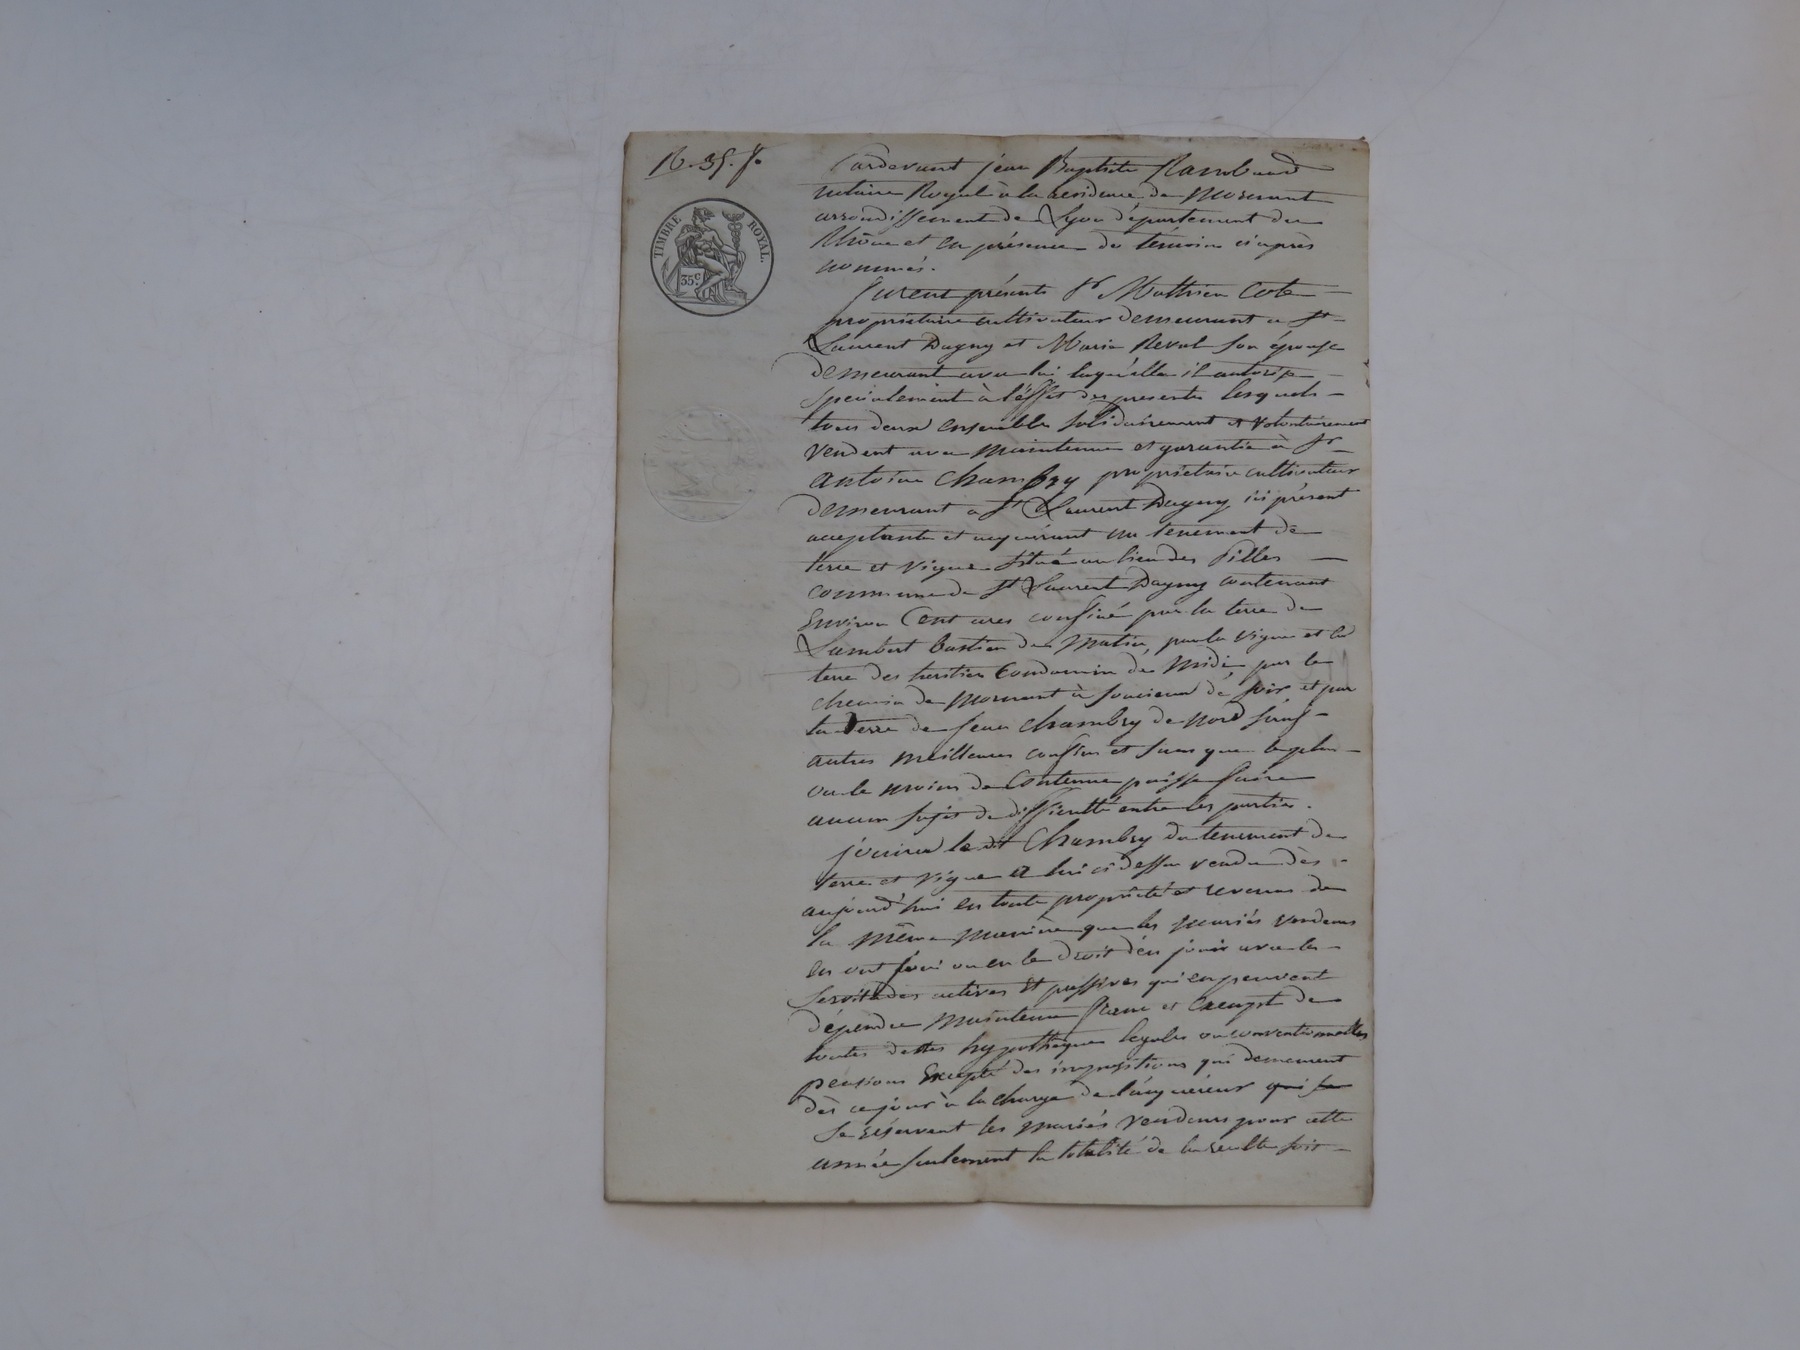 TIMBRE ROYAL.
35c.
Pardevant jean Baptiste Rambaud
notaire Royal à la residence de Mornant
arrondissement de Lyon département du
Rhône et en présence de témoins ci après
nommés.
furent présents Sr Mathieu Cote
propriétaire cultivateur demeurant a St
Laurent Dagny et Marie Reval son épouse
demeurant avec lui laquelle il autorise
specialement à l'effet des presentes lesquels
tous deux ensemble solidairement et volontairement
vendent avec maintenue et garantie à Sr
Antoine Chambry propriétaire cultivateur
demeurant a St Laurent Dagny ici présent
acceptante et acquérant un tenement de
terre et vigne situé au lieu des Pilles
commune de St Laurent Dagny contenant
Environ Cent ares confiné par la terre de
Lambert Bastien de matin, par la vigne et la
terre des heritiers Condamin de midi par le
chemin de Mornant à soucieux de soir et par
la terre de jean Chambry de nord sauf
autres meilleures confins et sans que le plus
ou le moins de Contenue puisse faire
aucun sujet de difficulté entre les parties.
jouira le dit Chambry du tenement de
terre et vigne a lui ci dessu vendu dès
aujourd'hui en toute propriété et revenus de
la même manière que les mariés vendeurs
en ont joui ou eu le droit d'en jouir avec les
servitudes actives et passives qui en peuvent
dépendre maintenu franc et Exempt de
toutes dettes hypothèques legales ou conventionnelles
pensions Excepté des impositions qui demeurent
dès ce jour à la charge de l'acquéreur qui se
se réservent les mariés vendeurs pour cette
année seulement la totalité de la recolte soit